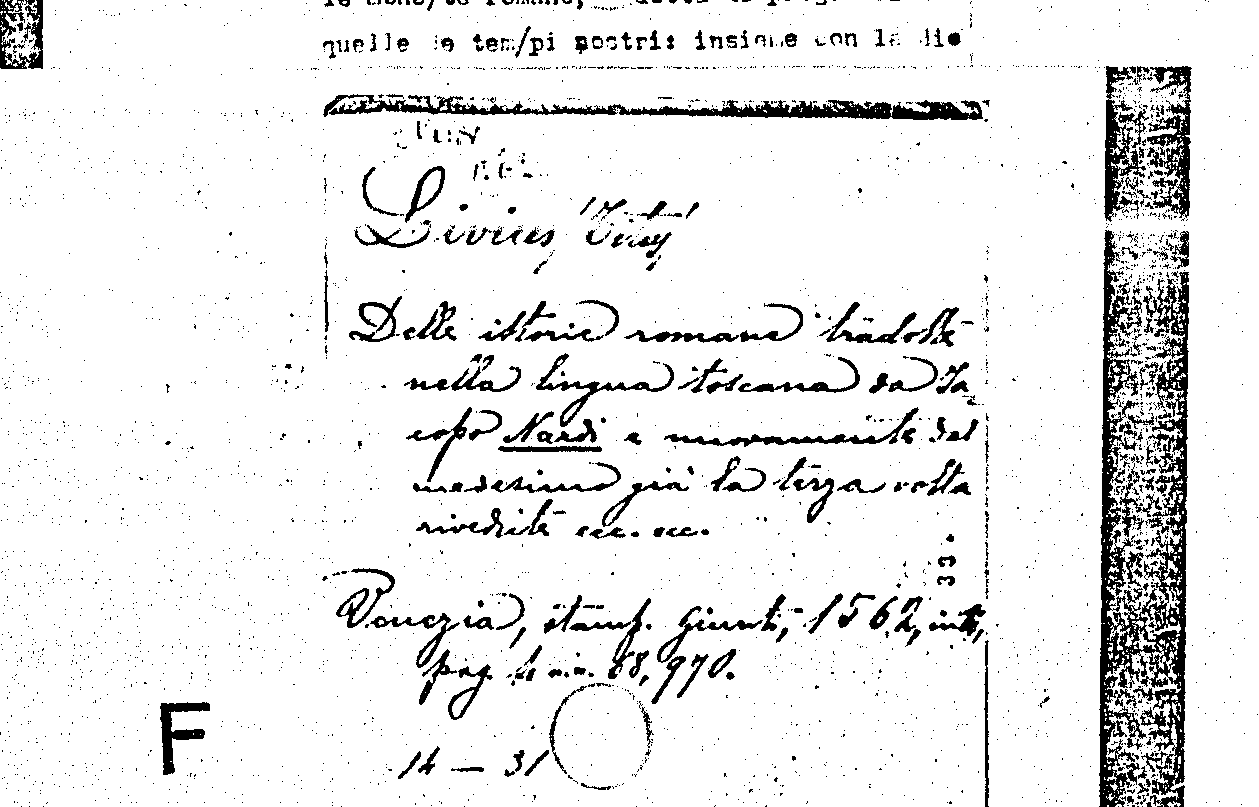 quelle de tem/pi nostri: insieme con la di
Livius, Titus,
Delle istorie romane tradotte
nella lingua toscana da Ja
copo Nardi e nuovamente dal
medesimo già la terza volta
rivedute ecc. ecc.
33.
Venezia, stamp. Giunti, 1562,
pag. 4 n.n. 68, 970.
F
14 — 31